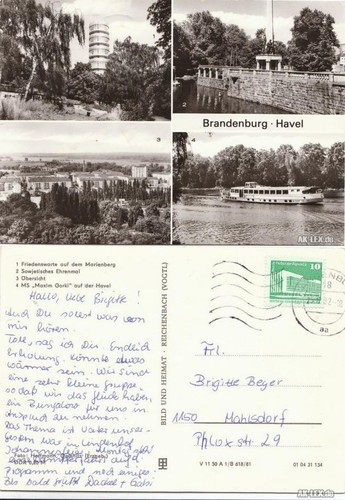 1
2
Brandenburg · Havel
3
4
AK-LEX.de
1 Friedenswarte auf dem Marienberg
2 Sowjetisches Ehrenmal
3 Übersicht
4 MS „Maxim Gorki“ auf der Havel
Hallo, liebe Brigitte!
Auch Du sollst was von
mir hören.
Toll, sag ich Dir. Endlich
Erholung. Könnte etwas
wärmer sein. Wir sind
eine sehr kleine Gruppe
so daß wir das Glück haben,
ein Bungalow für uns in
Anspruch der nehmen.
Das Thema ist Vater unser
Gestern war in
Programm und noch einiges
Bis bald grüßt
BILD UND HEIMAT · REICHENBACH (VOGTL)
10
Frl.
Brigitte Beyer
1150 Mahlsdorf
Phlox str 29
V 11 50 A 1/B 618/81
01 04 31 134
AK-LEX.de